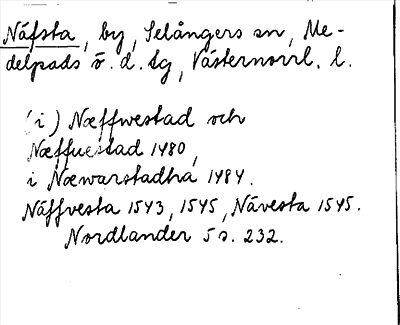 Näfsta, by, Selångers sn, Me-
delpads ö. d. tg, Västernorrl. l.
(i) Næffwestad och
Næffuestad 1480,
i Næwarstadha 1484.
Näffvesta 1543, 1545, Nävesta 1545.
Nordlander 5 s. 232.